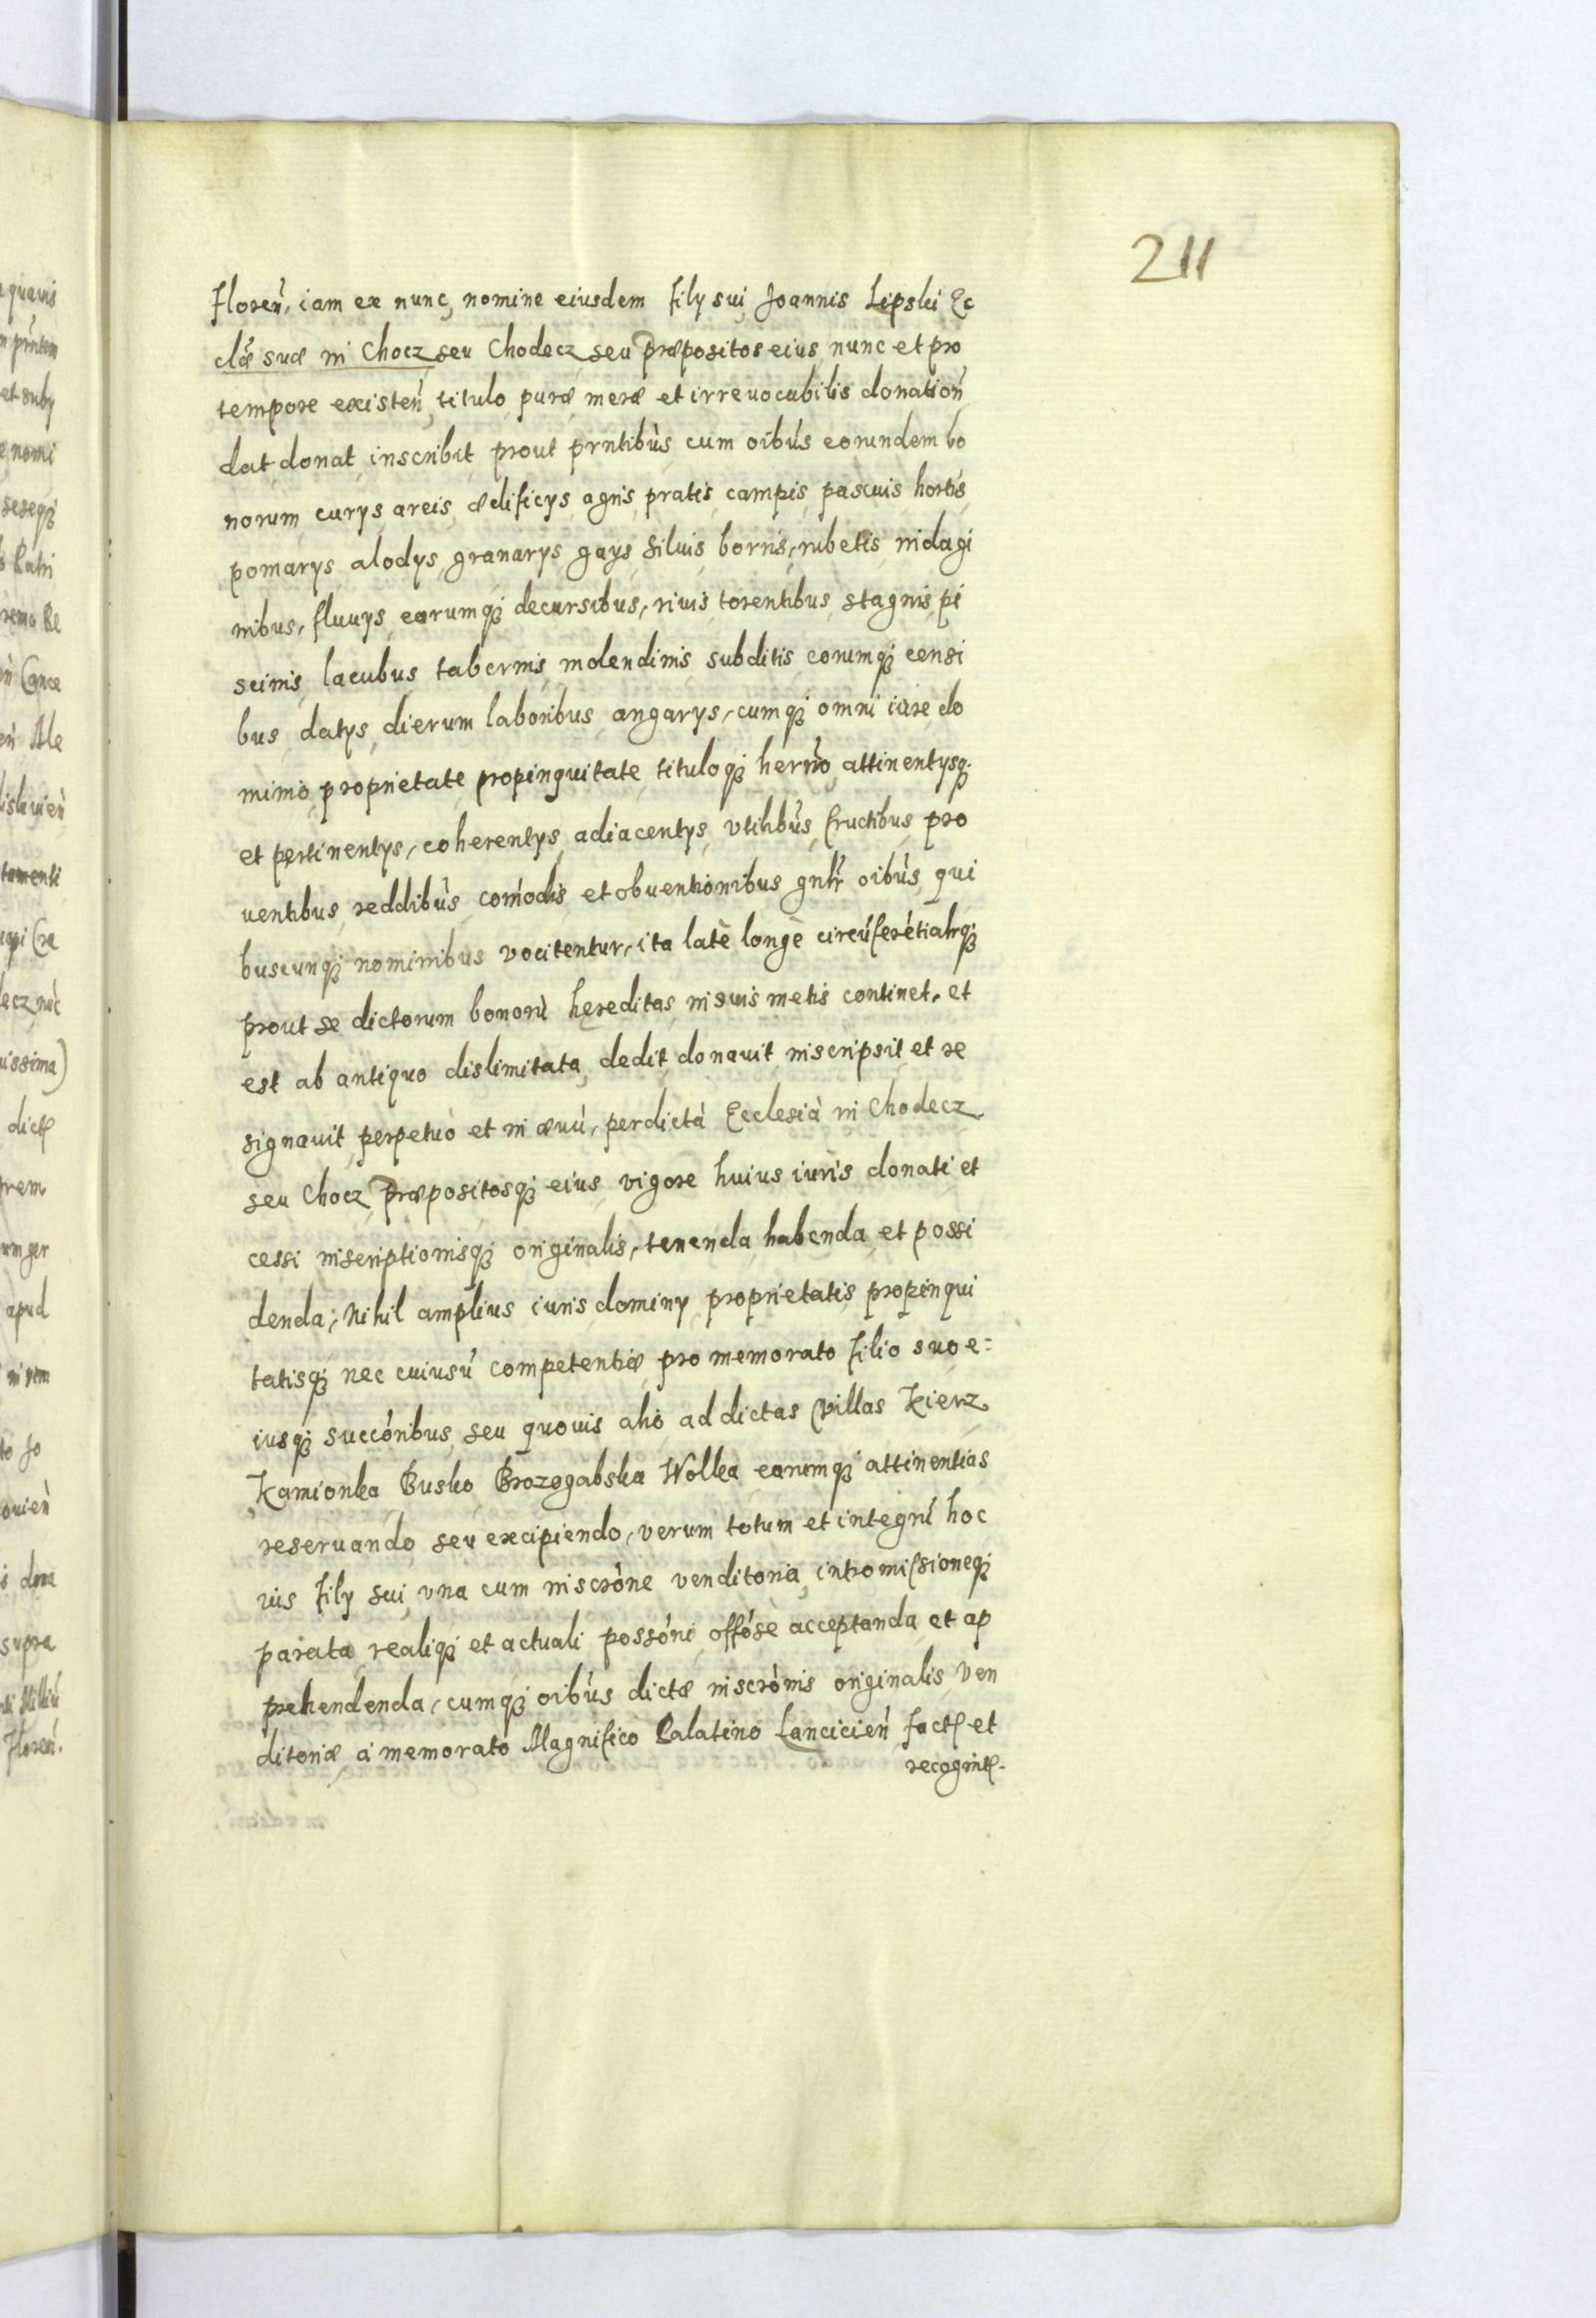 211
Floreń, iam ex nunc, nomine eiusdem Fily sui, Joannis Lipski Ec
clæ suæ in Chocz seu Chodecz, seu Præpositos eius nunc et pro
tempore existeń, titulo puræ meræ et irreuocabilis donation̄
dat donat inscribit prout prntibùs, cum oibùs eorundem bo
norum curys, areis, ædificys agris, pratis, campis, pascuis, hortis,
pomarys alodys, granarys, gays, siluis, borris, rubetis, indagi
nibus, fluuys, earumq; decursibus, riuis, torentibus, stagnis, pi
scinis, lacubus tabernis, molendinis, subditis, eorumq; censi
bus, datys, dierum laboribus, angarys, cumq; omni iure do
minio, proprietate, propinquitate, tituloq; herrio, attinentysq;
et pertinentys, coherentys, adiacentys, vtilibùs, fructibus, pro
uentibus, reddibùs, comodis, et obuentionibus gnlr oibùs, qui
buscunq; nominibus vocitentur, ita latè longè circúferétialrq;
prout se dictorum bonorù hereditas in suis metis continet, et
est ab antiquo dislimitata, dedit, donauit, inscripsit et re
signauit, perpetuò et in æuù, per dictà Ecclesià in Chodecz
seu Chocz, Præpositosq; eius, vigore huius iuris donati et
cessi inscriptionisq; originalis, tenenda habenda et possi
denda; Nihil amplius iuris, dominy, proprietatis, propinqui
tatisq; nec cuiusù competentiæ, pro memorato Filio suo e=
iusq; succónibus, seu quouis alio ad dictas Villas Kierz
Kamionka Busko Brozogabska Wolka earumq; attinentias
reseruando seu excipiendo, verum totum et integrú hoc
ius Fily sui, vna cum inscròne venditoria, intromissioneq;
parata, realiq; et actuali possóni offósè acceptanda et ap
prehendenda, cumq; oibùs dictæ inscrònis originalis ven
ditoriæ, à memorato Magnifico Palatino Lancicień, fact et
recognit.